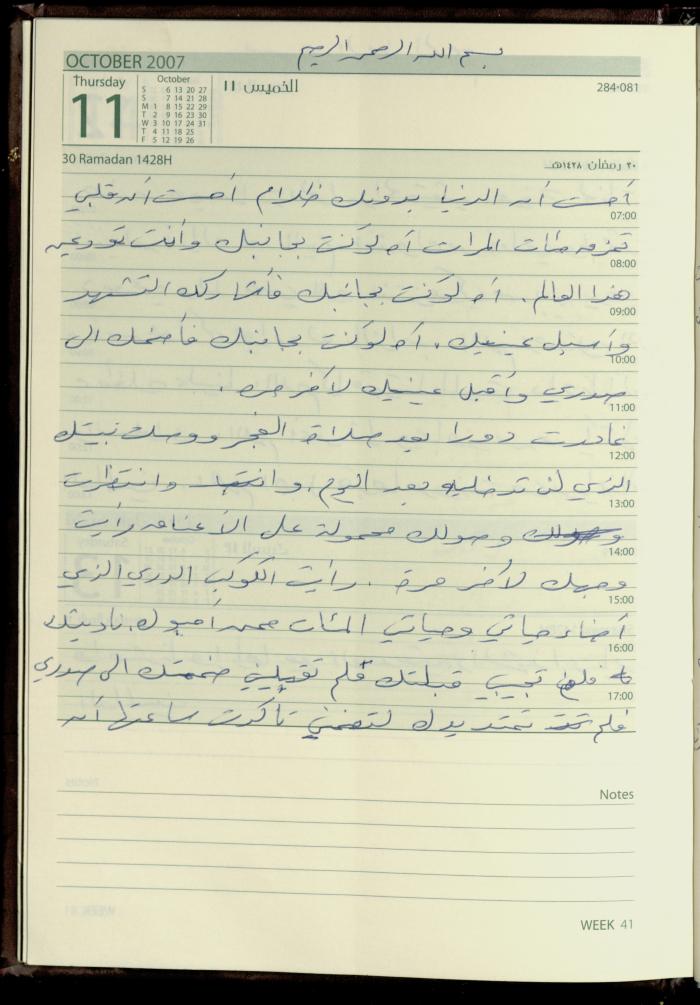 بسم الله الرحمن الرحيم
OCTOBER 2007
Thursday
11
October
S 6 13 20 27
S 7 14 21 28
M 1 8 15 22 29
T 2 9 16 23 30
W 3 10 17 24 31
T 4 11 18 25
F 5 12 19 26
الخميس ١١
284-081
30 Ramadan 1428H
٣٠ رمضان ١٤٢٨هـ
أحست أن الدنيا بدونك ظلام أحست أن قلبي
07:00
تمزق مئات المرات آه لو كنت بجانبك وأنت تودعين
08:00
هذا العالم. آه لو كنت بجانبك فأشاركك التشهد
09:00
وأسبل عينيك. آه لو كنت بجانبك فأضمك الى
10:00
صدري وأقبل عينيك لآخر مرة.
11:00
غادرت دورا بعد صلاة الفجر ووصلت بيتك
12:00
الذي لن تدخليه بعد اليوم. وانتظرت
13:00
وصولك محمولة على الأعناق رأيت
14:00
وجهك لآخر مرة. رأيت الكوكب الدري الذي
15:00
أضاء حياتي وحياتي المئات ممن أحبوك. ناديتك
16:00
فلم تجيبي قبلتك فلم تقبليني ضممتك الى صدري
17:00
فلم تمتد يدك لتضمني تأكدت ساعتها أن
Notes
WEEK 41